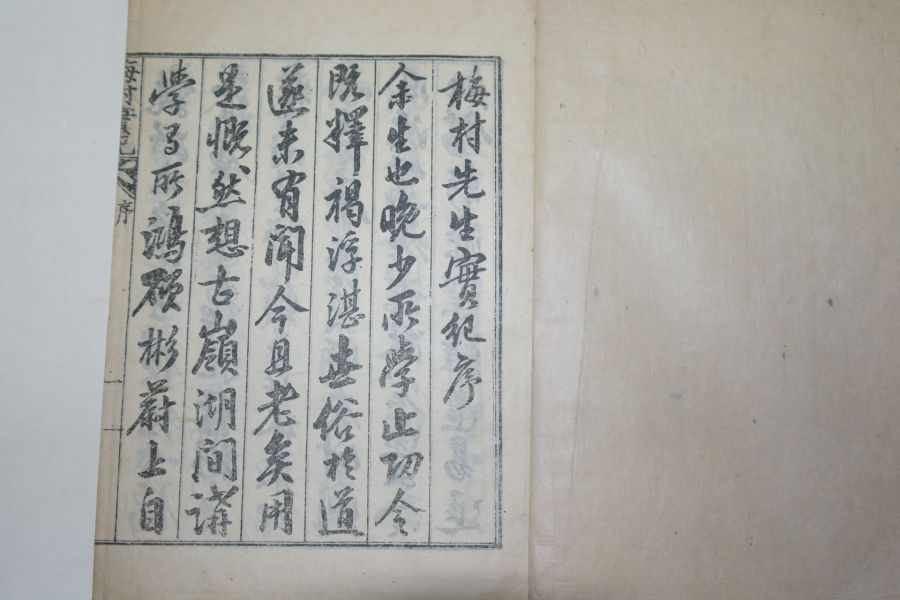 梅村先生實紀序
余生也晚少所學止功令
既釋褐浮湛世俗於道
邈未有聞今且老矣用
是慨然想古嶺湖間講
學之所鴻碩彬蔚上自
梅村實紀 序 一